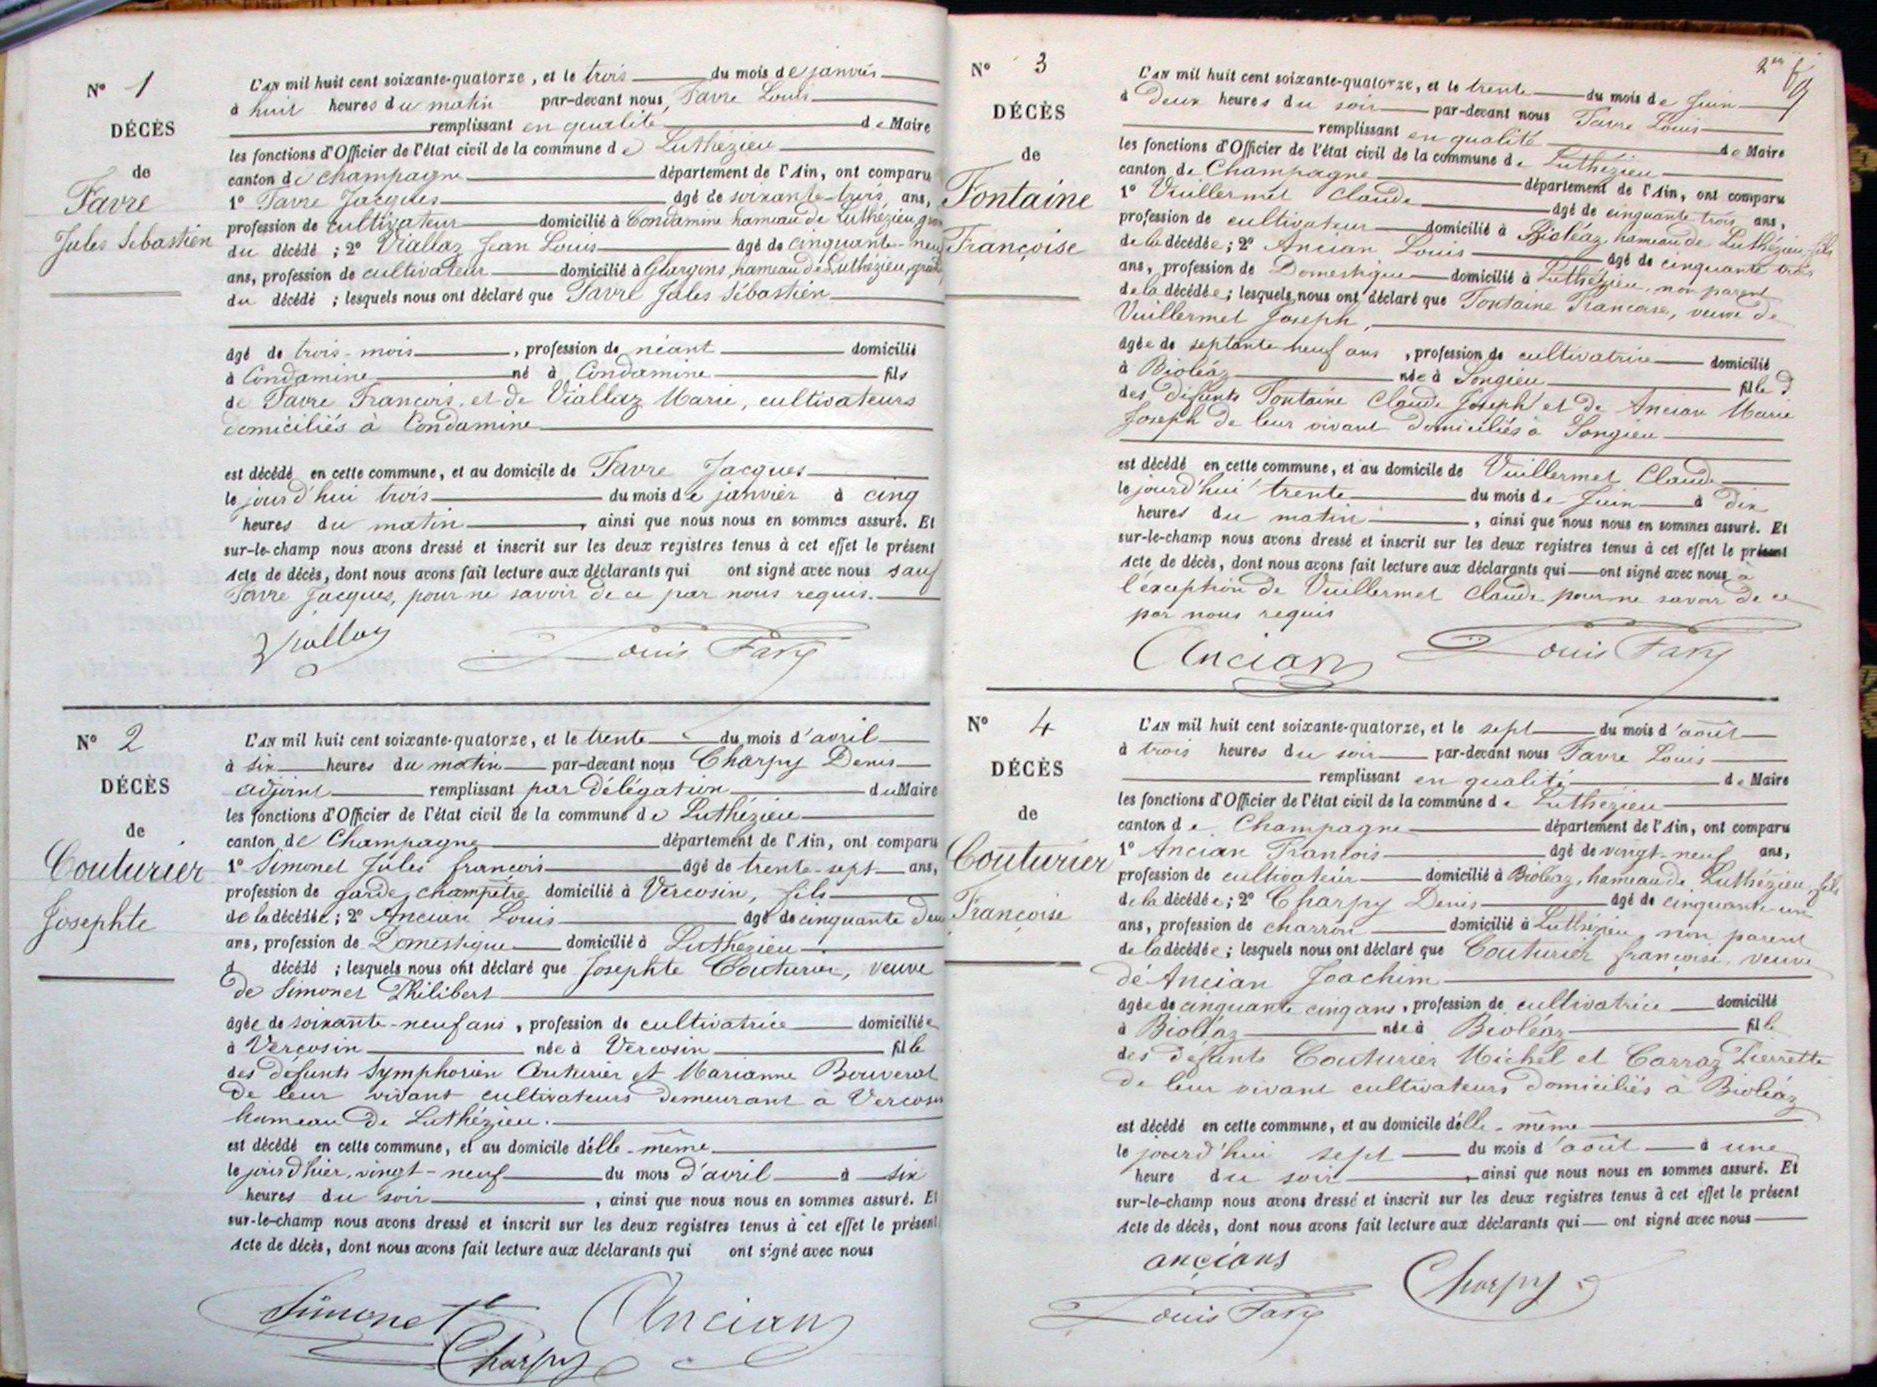 N° 1
DÉCÈS
de
Favre
Jules Sébastien
L'AN mil huit cent soixante-quatorze, et le trois du mois de janvier
à huit heures du matin par-devant nous, Favre Louis
remplissant en qualité de Maire
les fonctions d'Officier de l'état civil de la commune de Luthézieu
canton de Champagne département de l'Ain, ont comparu
1° Favre Jacques âgé de soixante-trois ans,
profession de cultivateur domicilié à Condamine hameau de Luthézieu,
du décédé ; 2° Viallaz Jean Louis âgé de cinquante-neuf
ans, profession de cultivateur domicilié à hameau de Luthézieu,
du décédé ; lesquels nous ont déclaré que Favre Jules Sébastien
âgé de trois-mois, profession de néant domicilié
à Condamine né à Condamine fils
de Favre François, et de Viallaz Marie, cultivateurs
domiciliés à Condamine
est décédé en cette commune, et au domicile de Favre Jacques
le jourd'hui trois du mois de janvier à cinq
heures du matin, ainsi que nous nous en sommes assuré. Et
sur-le-champ nous avons dressé et inscrit sur les deux registres tenus à cet effet le présent
Acte de décès, dont nous avons fait lecture aux déclarants qui ont signé avec nous sauf
Favre Jacques, pour ne savoir de ce par nous requis.
Viallaz Louis Favre
N° 2
DÉCÈS
de
Couturier
Josephte
L'AN mil huit cent soixante-quatorze, et le trente du mois d'avril
à six heures du matin par-devant nous Charpy Denis
adjoint remplissant par délégation du Maire
les fonctions d'Officier de l'état civil de la commune de Luthézieu
canton de Champagne département de l'Ain, ont comparu
1° Simonet Jules françois âgé de trente-sept ans,
profession de garde champêtre domicilié à Vercosin, fils
de la décédée ; 2° Ancian Louis âgé de cinquante deux
ans, profession de Domestique domicilié à Luthézieu
d décédé ; lesquels nous ont déclaré que Josephte Couturier, veuve
de Simonet Philibert
âgée de soixante-neuf ans, profession de cultivatrice domiciliée
à Vercosin née à Vercosin fille
des défunts Symphorien Couturier et Marianne Bouverat
de leur vivant cultivateurs demeurant à Vercosin
hameau de Luthézieu.
est décédé en cette commune, et au domicile d'elle-même
le jour d'hier, vingt-neuf du mois d'avril à six
heures du soir, ainsi que nous nous en sommes assuré. Et
sur-le-champ nous avons dressé et inscrit sur les deux registres tenus à cet effet le présent
Acte de décès, dont nous avons fait lecture aux déclarants qui ont signé avec nous
Simonet Ancian
Charpy
N° 3
DÉCÈS
de
Fontaine
Françoise
L'AN mil huit cent soixante-quatorze, et le trente du mois de Juin
à deux heures du soir par-devant nous Favre Louis
remplissant en qualité de Maire
les fonctions d'Officier de l'état civil de la commune de Luthézieu
canton de Champagne département de l'Ain, ont comparu
1° Vuillermet Claude âgé de cinquante trois ans,
profession de cultivateur domicilié à Bioléaz hameau de Luthézieu fils
de la décédée ; 2° Ancian Louis âgé de cinquante trois
ans, profession de Domestique domicilié à Luthézieu, non parent
de la décédée ; lesquels nous ont déclaré que Fontaine Françoise, veuve de
Vuillermet Joseph,
âgée de septante neuf ans, profession de cultivatrice domicilié
à Bioléaz née à Songieu fille
des défunts Fontaine Claude Joseph et de Ancian Marie
Joseph de leur vivant domiciliés à Songieu
est décédé en cette commune, et au domicile de Vuillermet Claude
le jourd'hui trente du mois de Juin à dix
heures du matin, ainsi que nous nous en sommes assuré. Et
sur-le-champ nous avons dressé et inscrit sur les deux registres tenus à cet effet le présent
Acte de décès, dont nous avons fait lecture aux déclarants qui ont signé avec nous à
l'exception de Vuillermet Claude pour ne savoir de ce
par nous requis
Ancian Louis Favre
N° 4
DÉCÈS
de
Couturier
Françoise
L'AN mil huit cent soixante-quatorze, et le sept du mois d'août
à trois heures du soir par-devant nous Favre Louis
remplissant en qualité de Maire
les fonctions d'Officier de l'état civil de la commune de Luthézieu
canton de Champagne département de l'Ain, ont comparu
1° Ancian François âgé de vingt-neuf ans,
profession de cultivateur domicilié à Bioléaz, hameau de Luthézieu, fils
de la décédée ; 2° Charpy Denis âgé de cinquante-un
ans, profession de charron domicilié à Luthézieu, non parent
de la décédée ; lesquels nous ont déclaré que Couturier françoise, veuve
de Ancian Joachim
âgée de cinquante cinq ans, profession de cultivatrice domicilié
à Bioléaz née à Bioléaz fille
des défunts Couturier Michel et Carraz Pierrette
de leur vivant cultivateurs domiciliés à Bioléaz
est décédé en cette commune, et au domicile d'elle-même
le jourd'hui sept du mois d'août à une
heure du soir, ainsi que nous nous en sommes assuré. Et
sur-le-champ nous avons dressé et inscrit sur les deux registres tenus à cet effet le présent
Acte de décès, dont nous avons fait lecture aux déclarants qui ont signé avec nous
ancians Charpy
Louis Favre